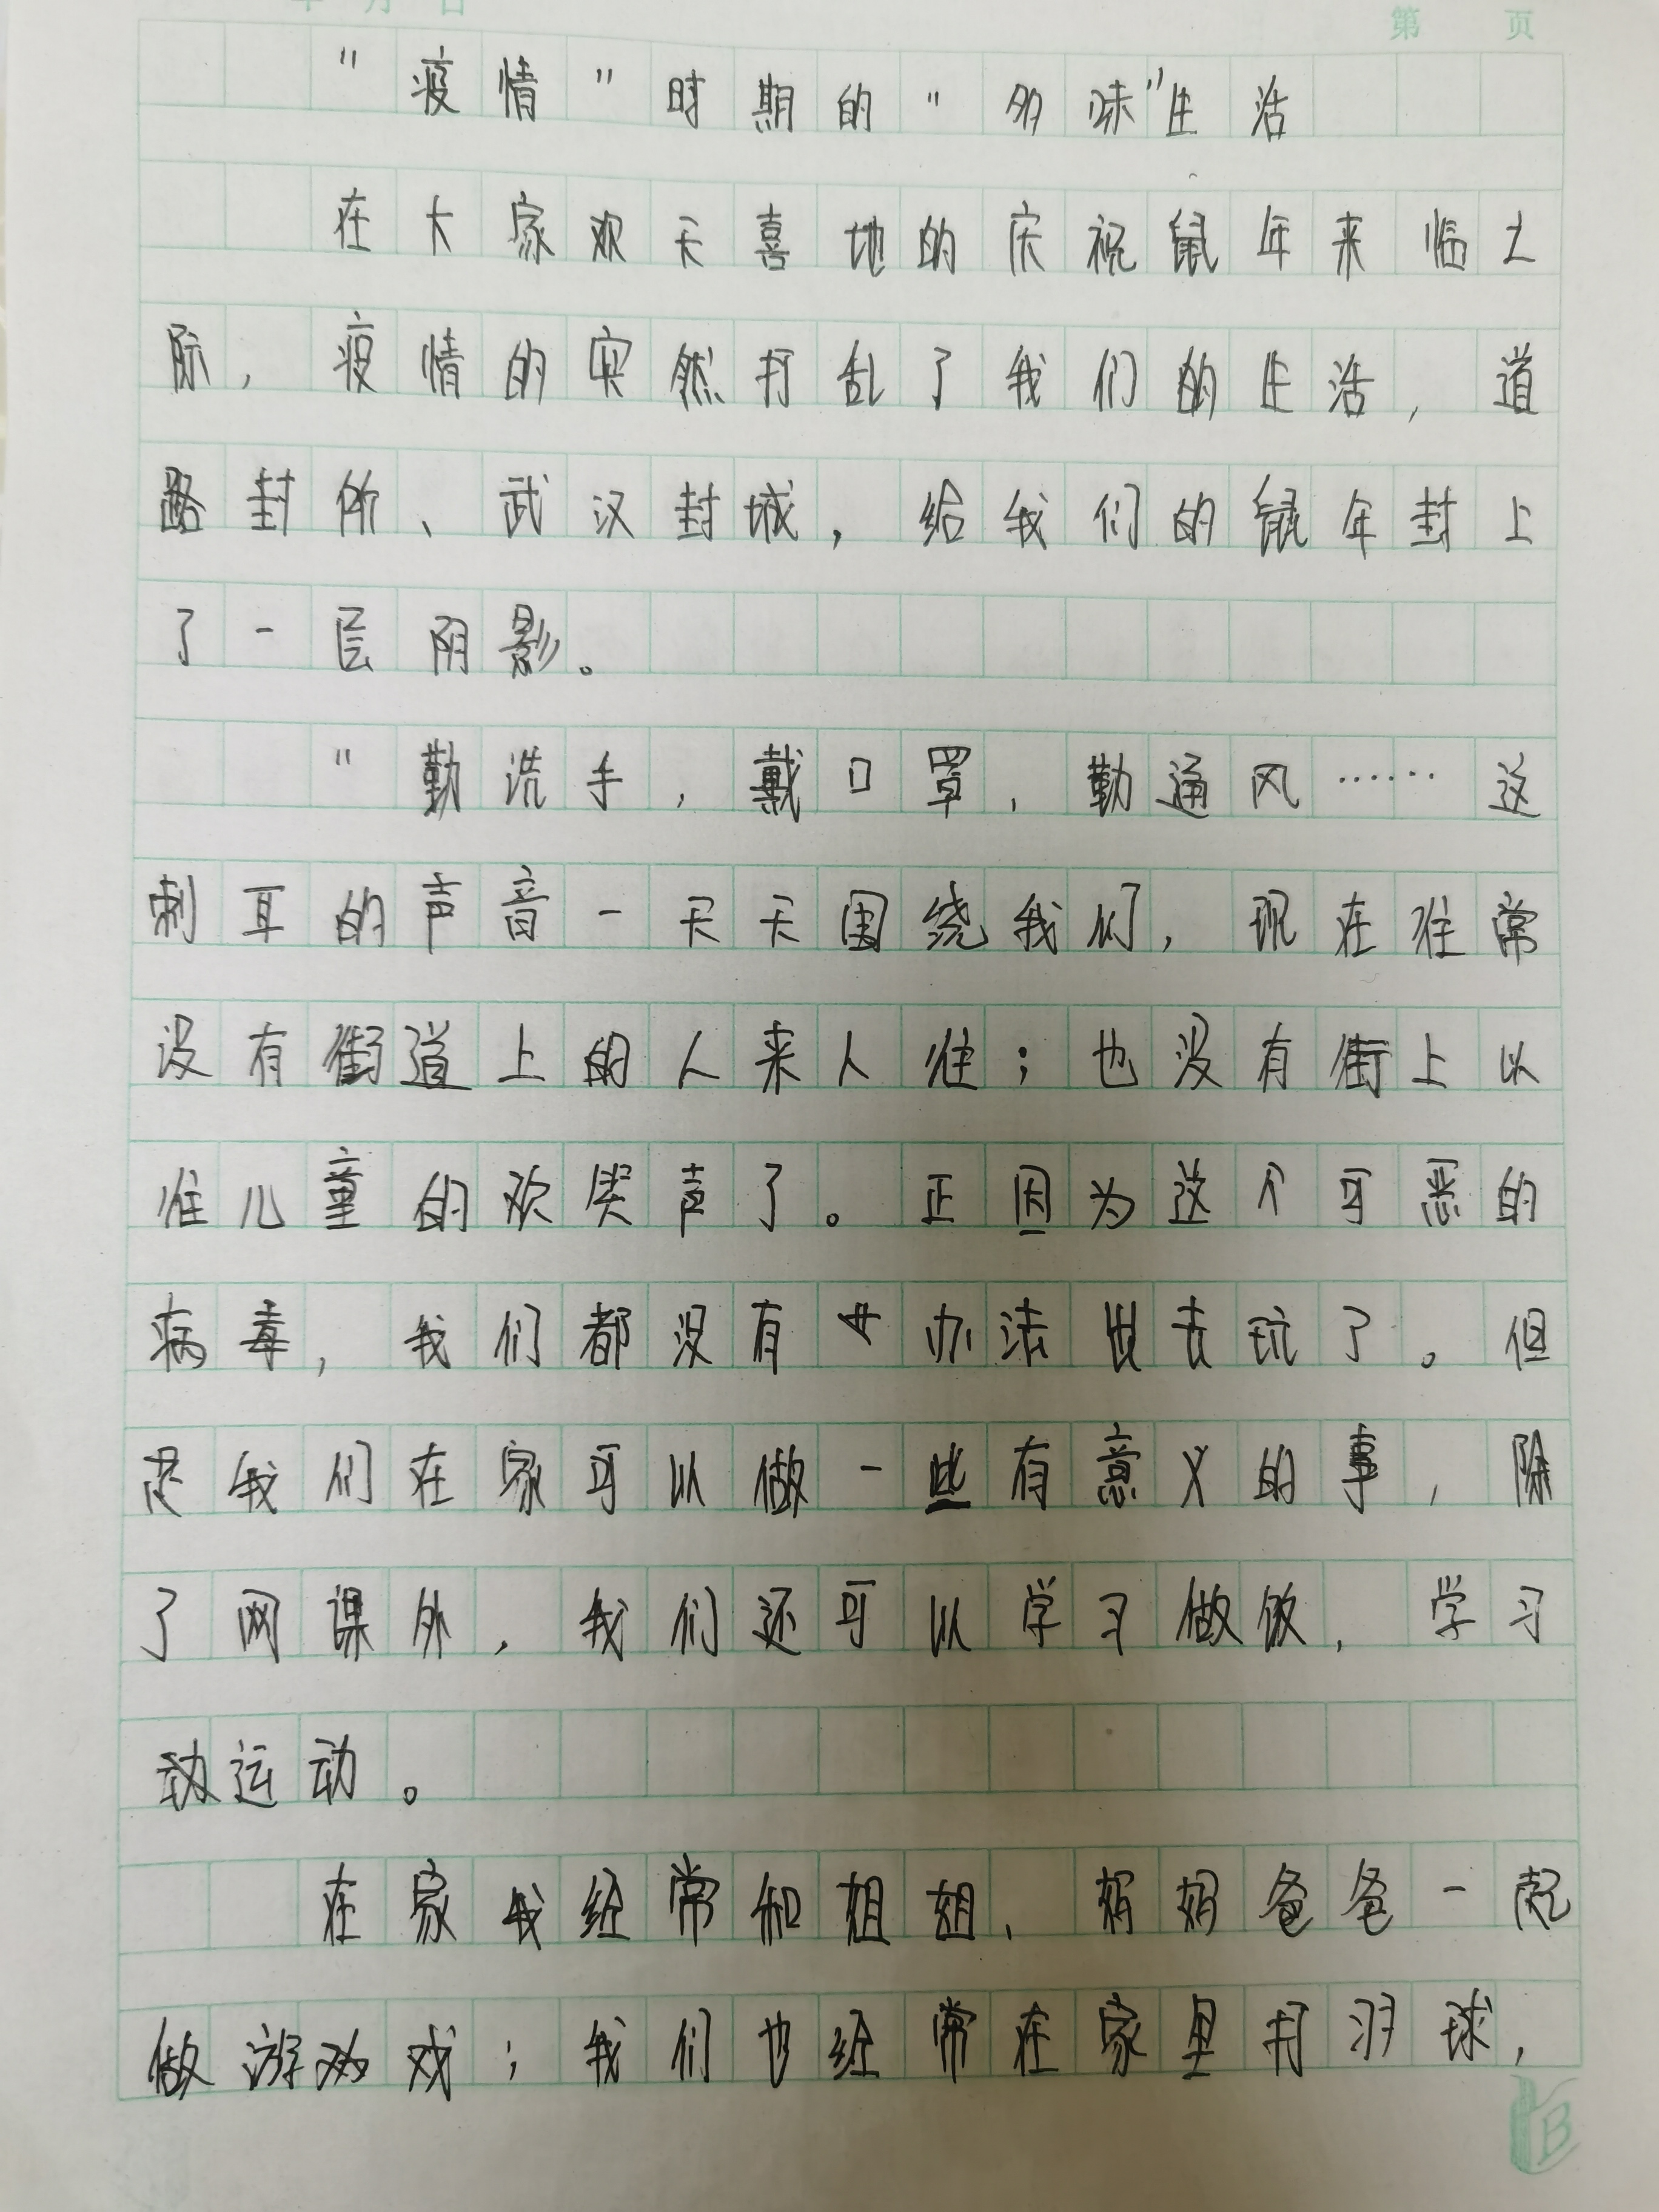 年 月 日
第 页
"疫情"时期的"多味"生活
在大家欢天喜地的庆祝鼠年来临之
际，疫情的突然打乱了我们的生活，道
路封所、武汉封城，给我们的鼠年封上
了一层阴影。
"勤洗手，戴口罩，勤通风……这
刺耳的声音一天天围绕我们，现在往常
没有街道上的人来人往；也没有街上以
往儿童的欢笑声了。正因为这个可恶的
病毒，我们都没有办法出去玩了。但
是我们在家可以做一些有意义的事，除
了网课外，我们还可以学习做饭，学习
运动。
在家我经常和姐姐、妈妈爸爸一起
做游戏；我们也经常在家里打羽球，
B